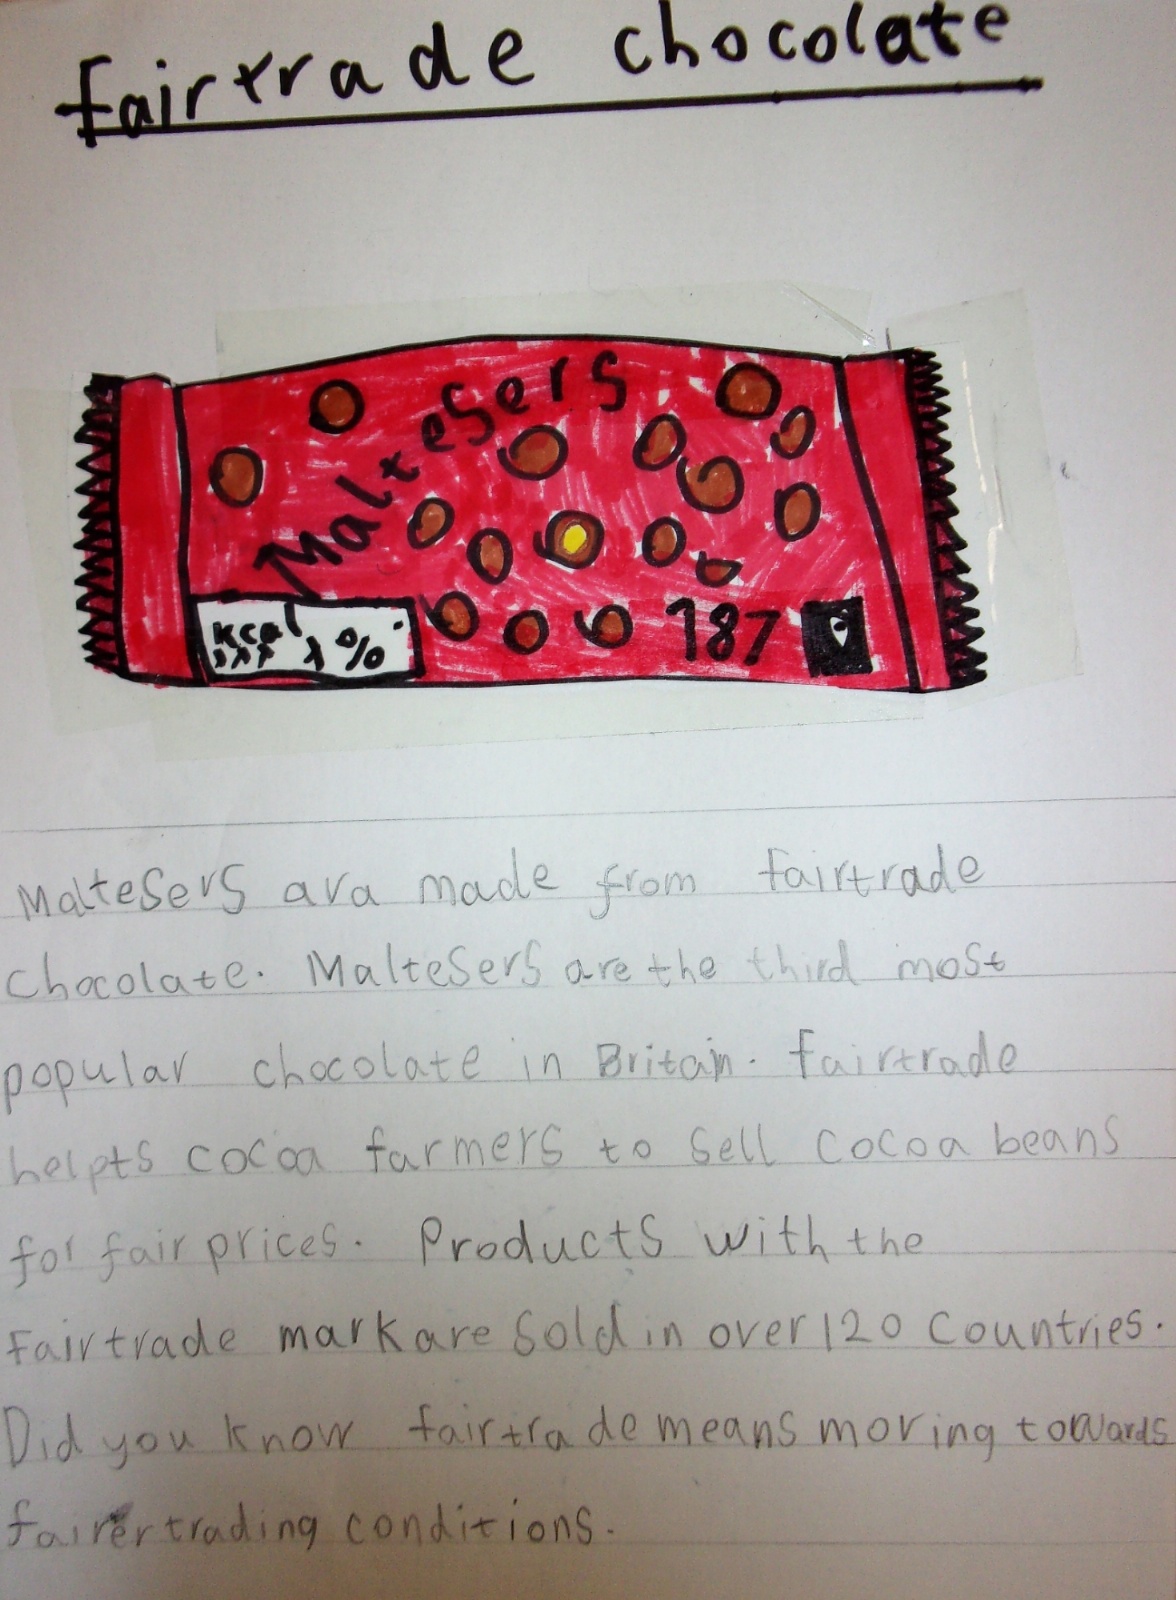 fairtrade chocolate
Maltesers
kcal
%
187
Maltesers ara made from fairtrade
chocolate. Maltesers are the third most
popular chocolate in Britain. fairtrade
helpts cocoa farmers to sell cocoa beans
for fair prices. Products with the
fairtrade mark are sold in over 120 countries.
Did you know fairtrade means moving towards
fairer trading conditions.